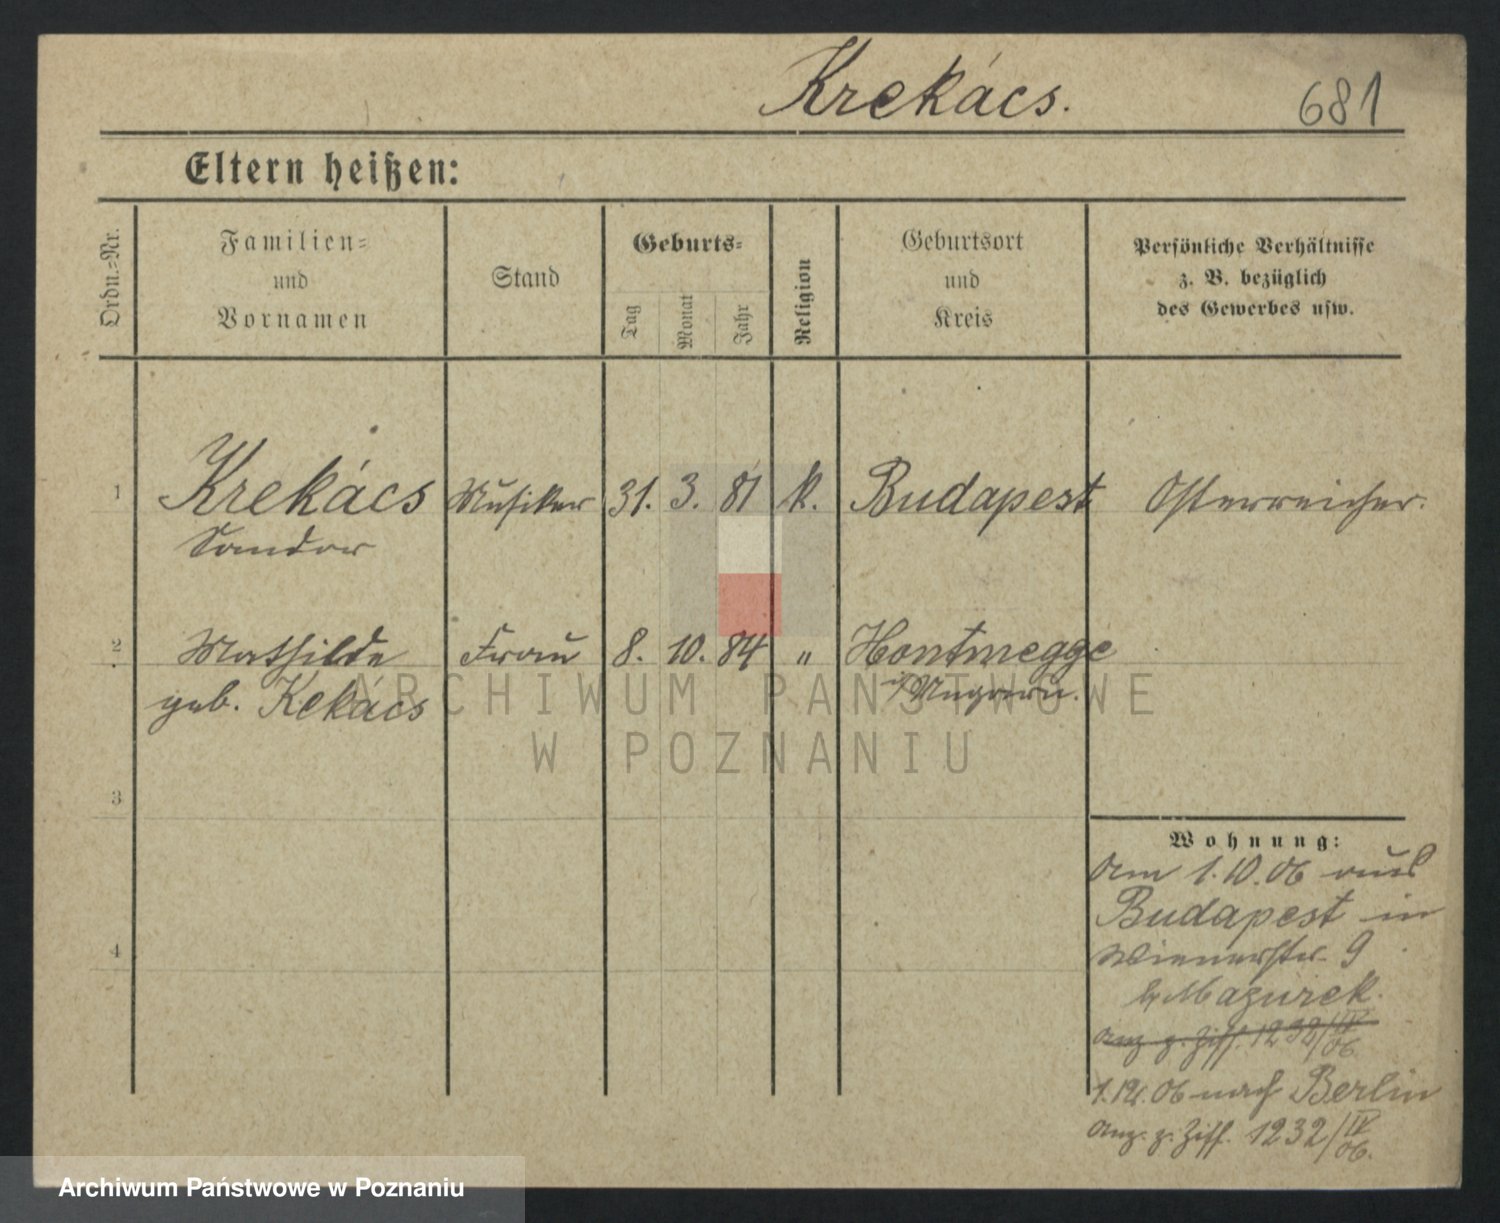 Krekács.
681
Eltern heißen:
Ordn.=Nr.
Familien=
und
Vornamen
Stand
Geburts=
Tag
Monat
Jahr
Religion
Geburtsort
und
Kreis
Persönliche Verhältnisse
z. B. bezüglich
des Gewerbes usw.
1 Krekács Musiker 31. 3. 81 k. Budapest Österreicher.
Sandor
2 Mathilde Frau 8. 10. 84 " Hontmegge
geb. Kekács i/Ungarn.
3
4
Wohnung:
Am 1.10.06 aus
Budapest in
Wienerstr. 9
b/ Mazurek.
Anz. z. Ziff. 1232/IV 06
1.12.06 nach Berlin
Anz. z. Ziff. 1232/IV 06.
ARCHIWUM PAŃSTWOWE
W POZNANIU
Archiwum Państwowe w Poznaniu